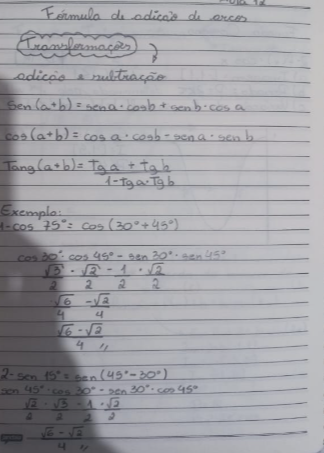 Fórmula de adição de arcos
Transformações
adição e subtração
Sen(a+b) = sen a · cos b + sen b · cos a
cos(a+b) = cos a · cos b - sen a · sen b
Tang(a+b) = Tg a + Tg b
1 - Tg a · Tg b
Exemplo:
1 - cos 75° = cos(30° + 45°)
cos 30° · cos 45° - sen 30° · sen 45°
√3/2 · √2/2 - 1/2 · √2/2
√6/4 - √2/4
√6 - √2
4 ,,
2 - sen 15° = sen(45° - 30°)
sen 45° · cos 30° - sen 30° · cos 45°
√2/2 · √3/2 - 1/2 · √2/2
√6 - √2
4 ,,